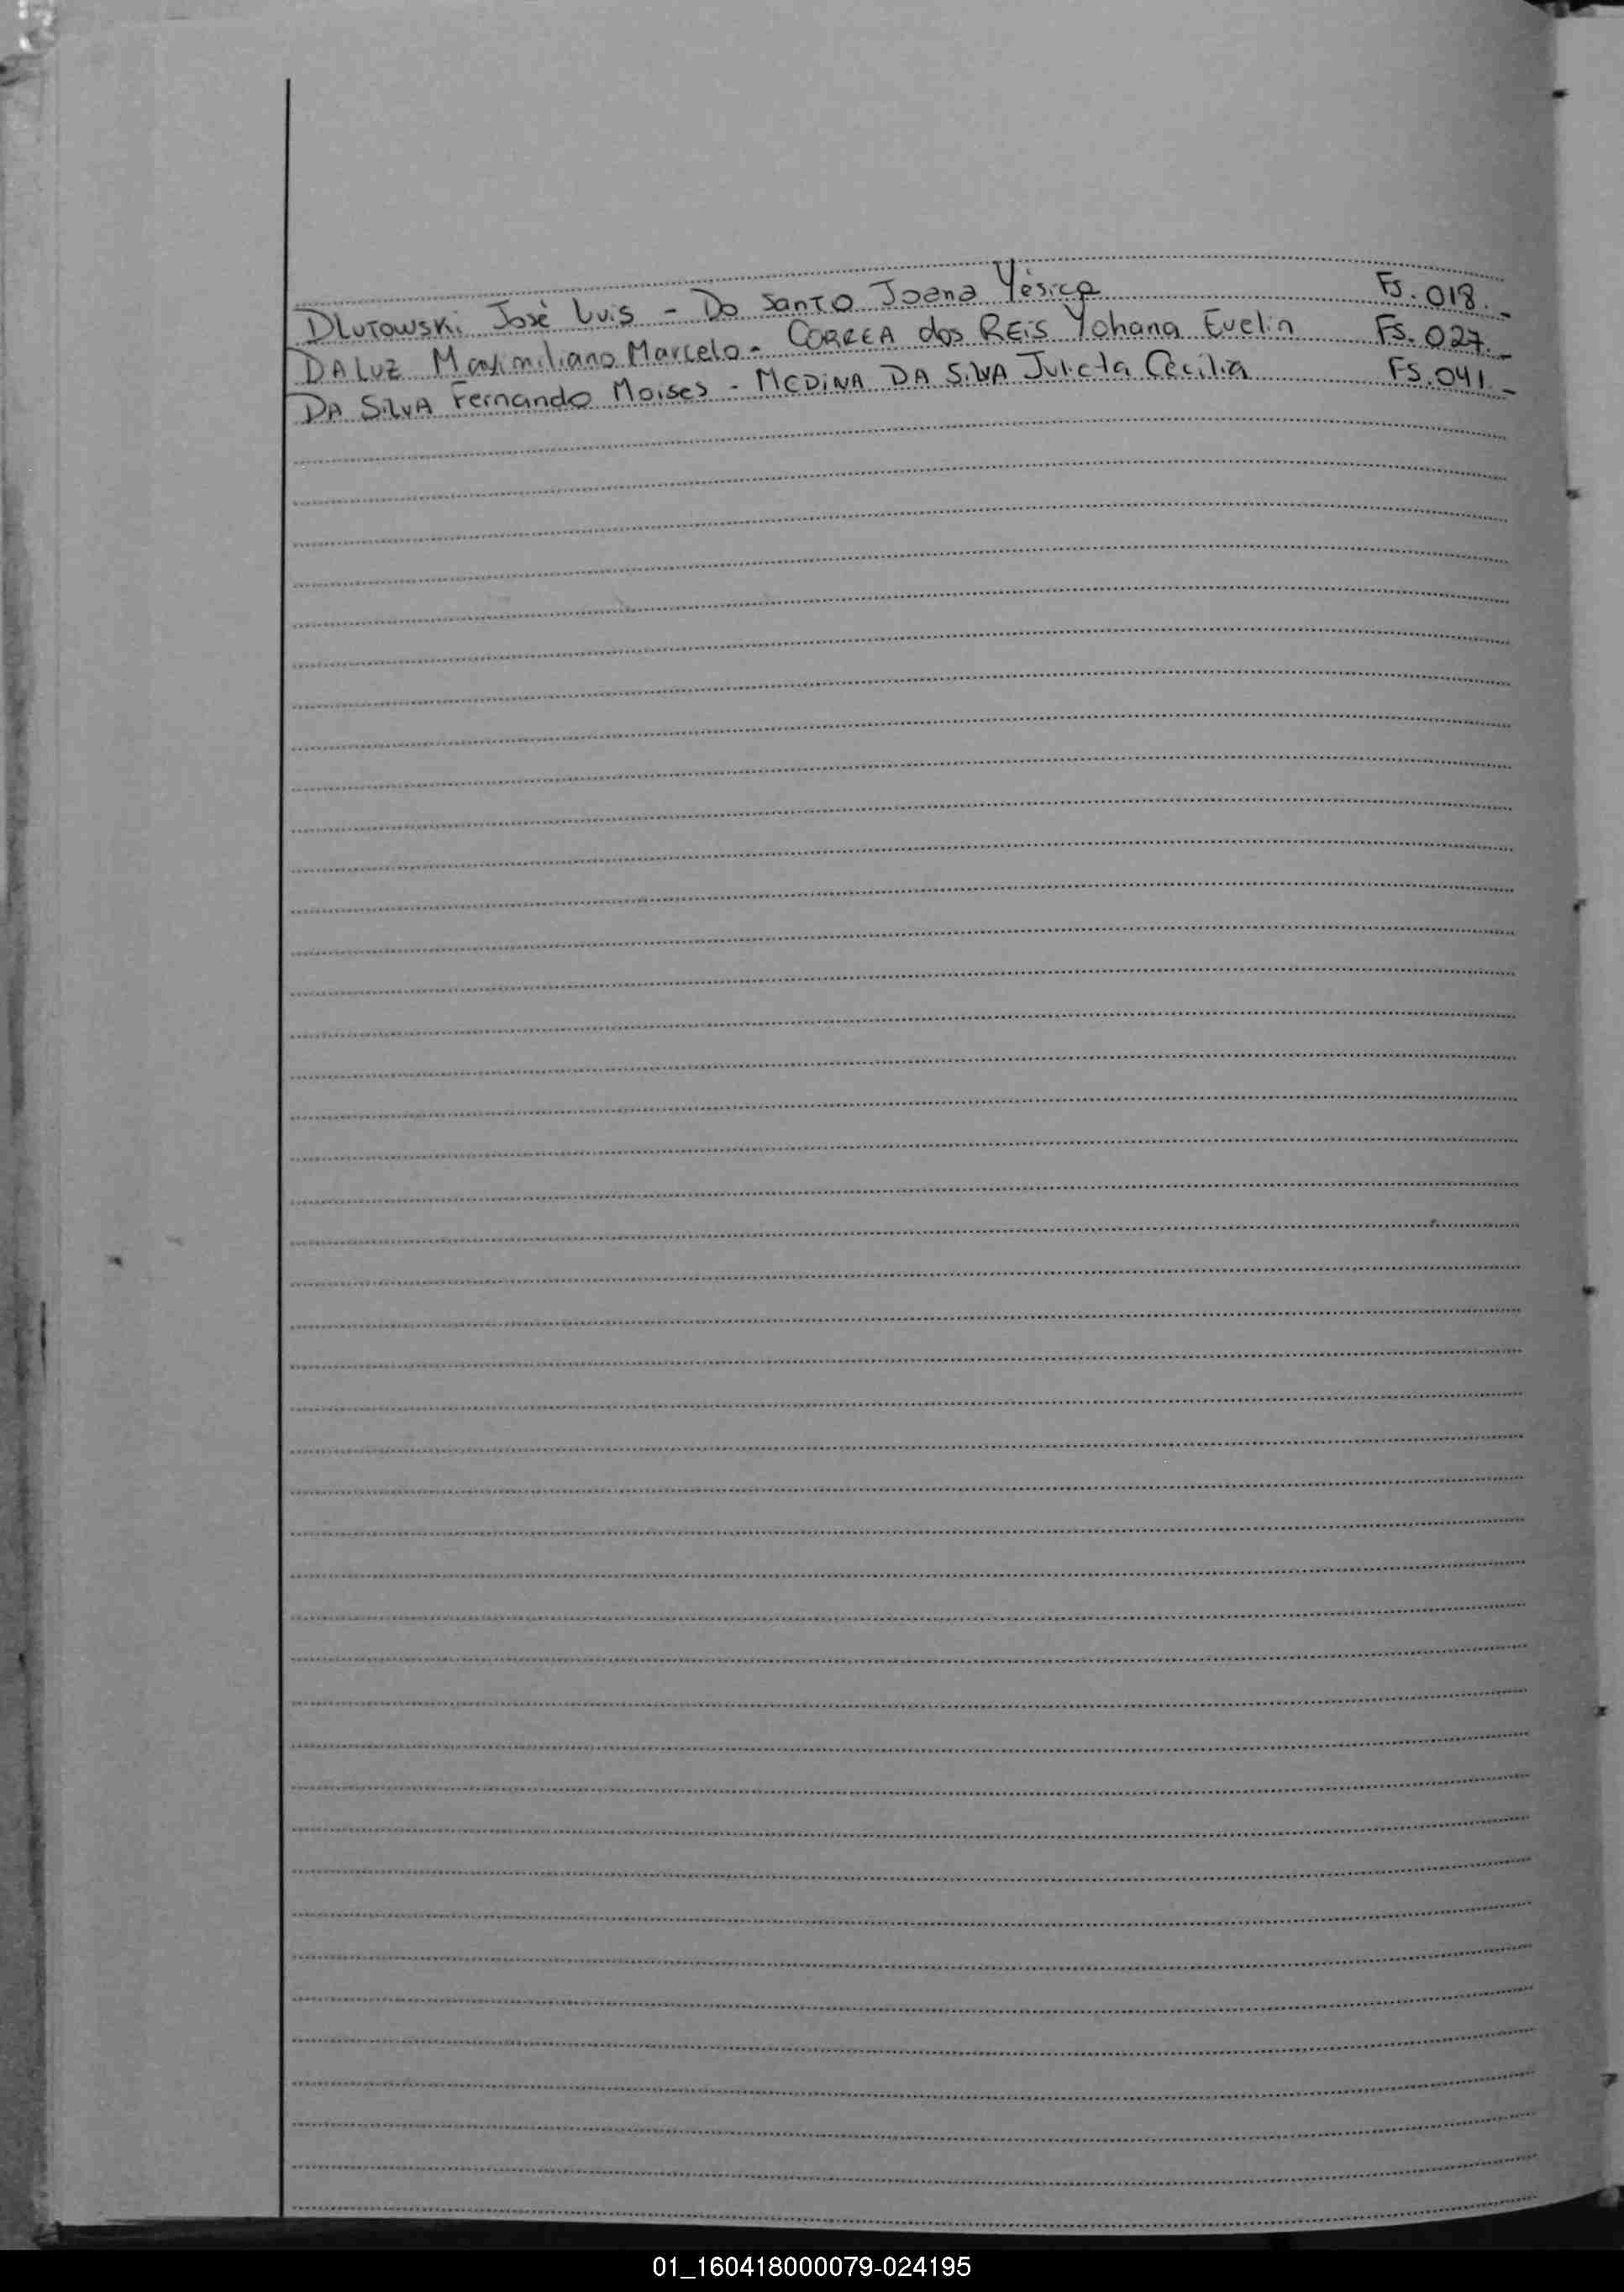 DLUTOWSKI José Luis - Do Santo Joana Yésica Fs. 018.-
DA LUZ Maximiliano Marcelo - CORREA dos REIS Yohana Evelin Fs. 027.-
DA SILVA Fernando Moises - MEDINA DA SILVA Julieta Cecilia Fs. 041.-
01_160418000079-024195